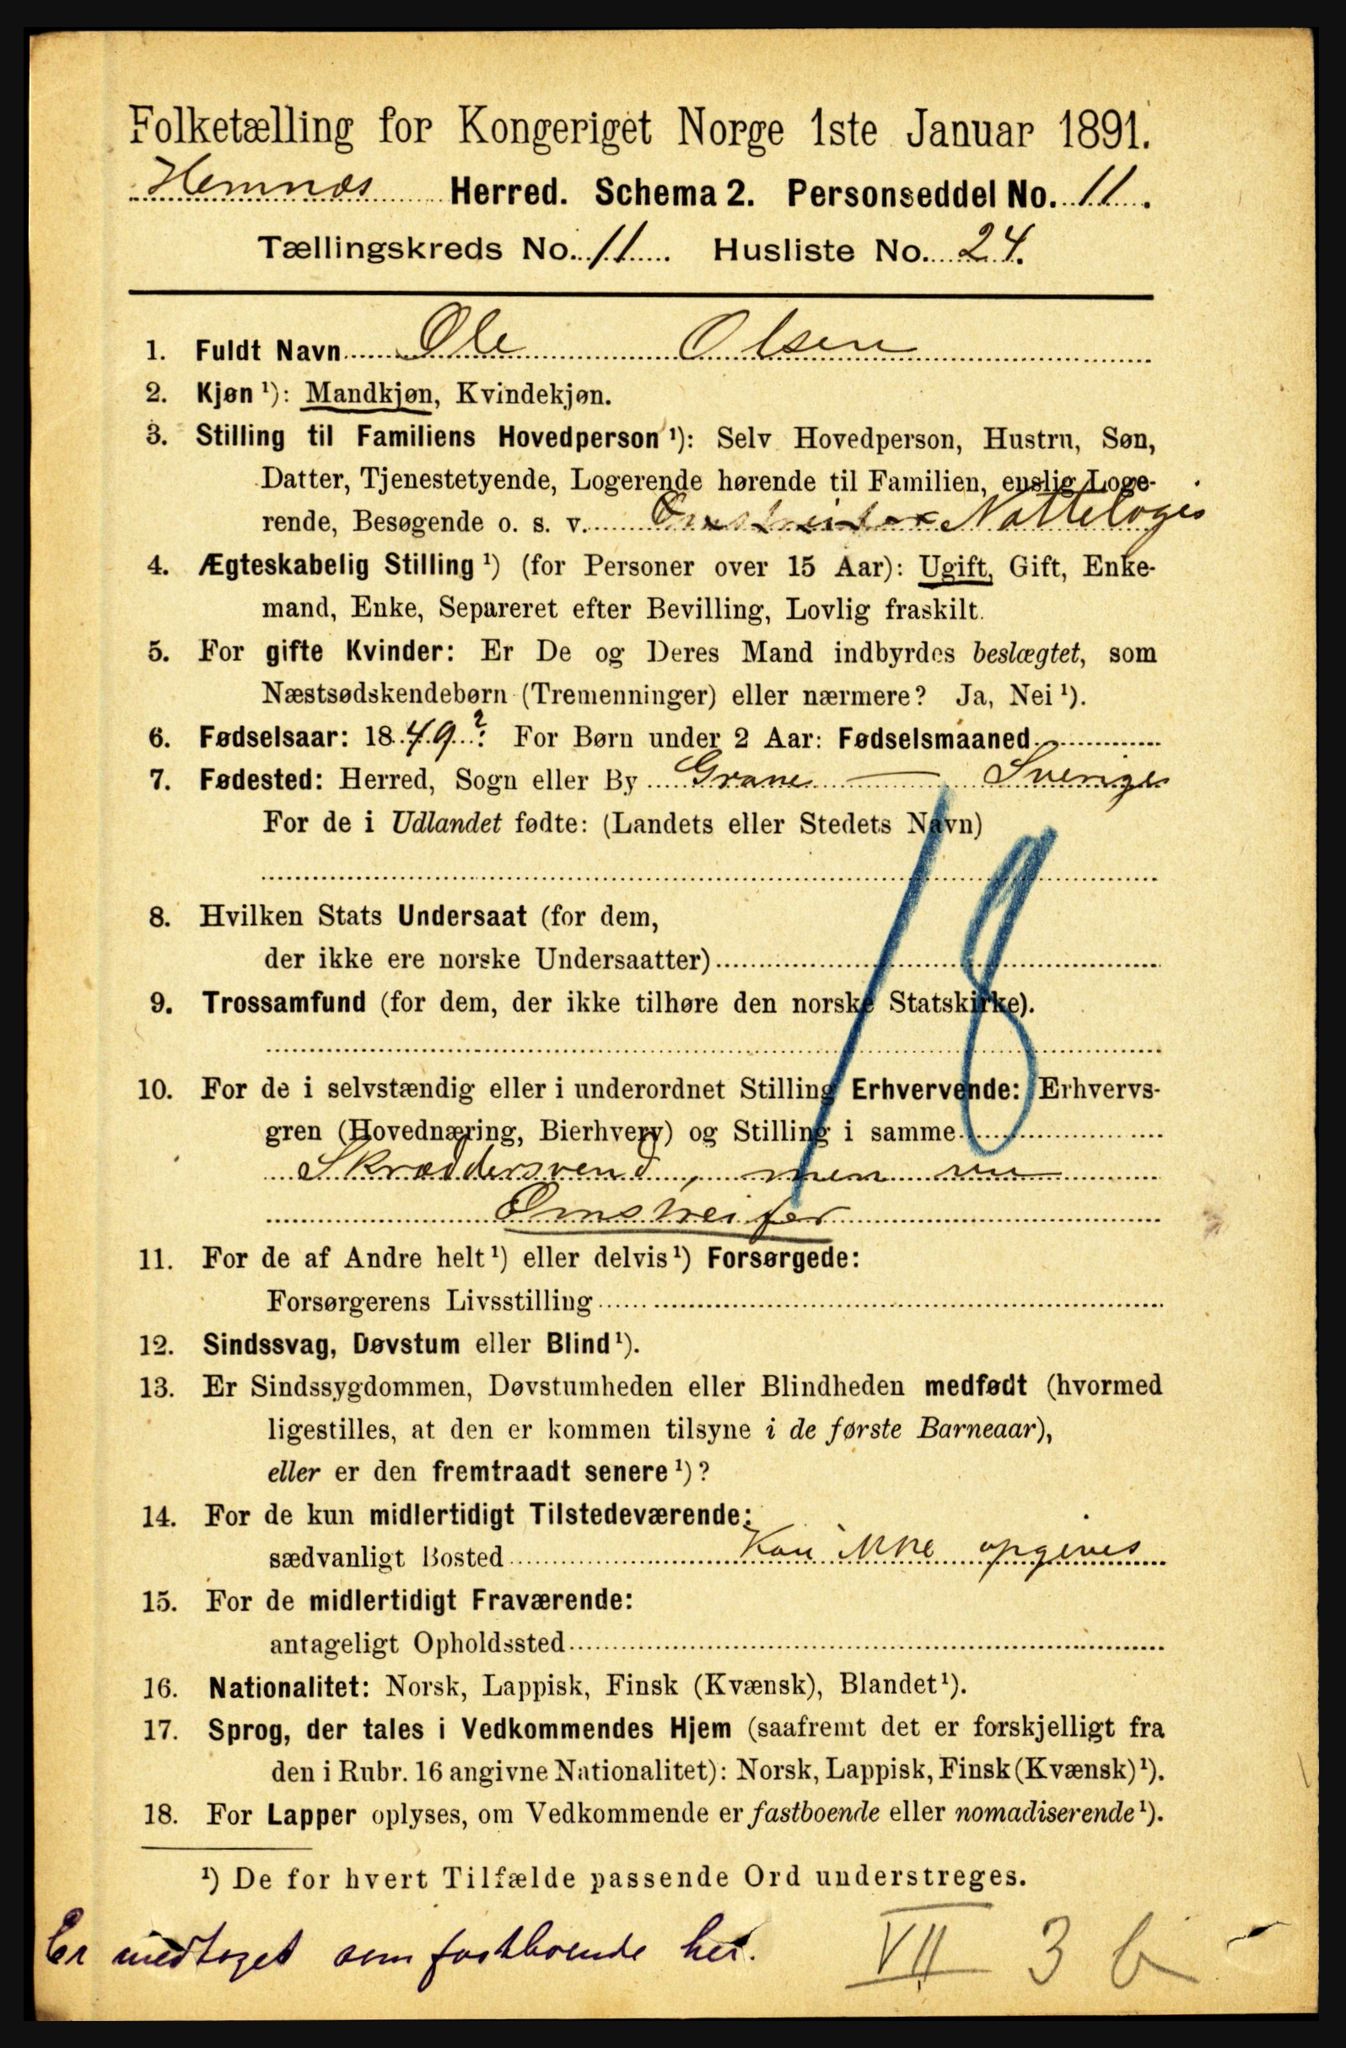 Folketælling for Kongeriget Norge 1ste Januar 1891.
Hemnæs Herred. Schema 2. Personseddel No. 11.
Tællingskreds No. 11. Husliste No. 24.
1. Fuldt Navn Ole Olsen
2. Kjøn ¹): Mandkjøn, Kvindekjøn.
3. Stilling til Familiens Hovedperson ¹): Selv Hovedperson, Hustru, Søn,
Datter, Tjenestetyende, Logerende hørende til Familien, enslig Loge-
rende, Besøgende o. s. v. Omstreifer Natteloges
4. Ægteskabelig Stilling ¹) (for Personer over 15 Aar): Ugift, Gift, Enke-
mand, Enke, Separeret efter Bevilling, Lovlig fraskilt.
5. For gifte Kvinder: Er De og Deres Mand indbyrdes beslægtet, som
Næstsødskendebørn (Tremenninger) eller nærmere? Ja, Nei ¹).
6. Fødselsaar: 1849? For Børn under 2 Aar: Fødselsmaaned
7. Fødested: Herred, Sogn eller By Grane — Sverige
For de i Udlandet fødte: (Landets eller Stedets Navn)
18
8. Hvilken Stats Undersaat (for dem,
der ikke ere norske Undersaatter)
9. Trossamfund (for dem, der ikke tilhøre den norske Statskirke).
10. For de i selvstændig eller i underordnet Stilling Erhvervende: Erhvervs-
gren (Hovednæring, Bierhverv) og Stilling i samme
Skræddersvend, men nu
Omstreifer
11. For de af Andre helt ¹) eller delvis ¹) Forsørgede:
Forsørgerens Livsstilling
12. Sindssvag, Døvstum eller Blind ¹).
13. Er Sindssygdommen, Døvstumheden eller Blindheden medfødt (hvormed
ligestilles, at den er kommen tilsyne i de første Barneaar),
eller er den fremtraadt senere ¹)?
14. For de kun midlertidigt Tilstedeværende:
sædvanligt Bosted Kan ikke opgives
15. For de midlertidigt Fraværende:
antageligt Opholdssted
16. Nationalitet: Norsk, Lappisk, Finsk (Kvænsk), Blandet ¹).
17. Sprog, der tales i Vedkommendes Hjem (saafremt det er forskjelligt fra
den i Rubr. 16 angivne Nationalitet): Norsk, Lappisk, Finsk (Kvænsk) ¹).
18. For Lapper oplyses, om Vedkommende er fastboende eller nomadiserende ¹).
¹) De for hvert Tilfælde passende Ord understreges.
Er medtaget som fastboende her. VII 3 b